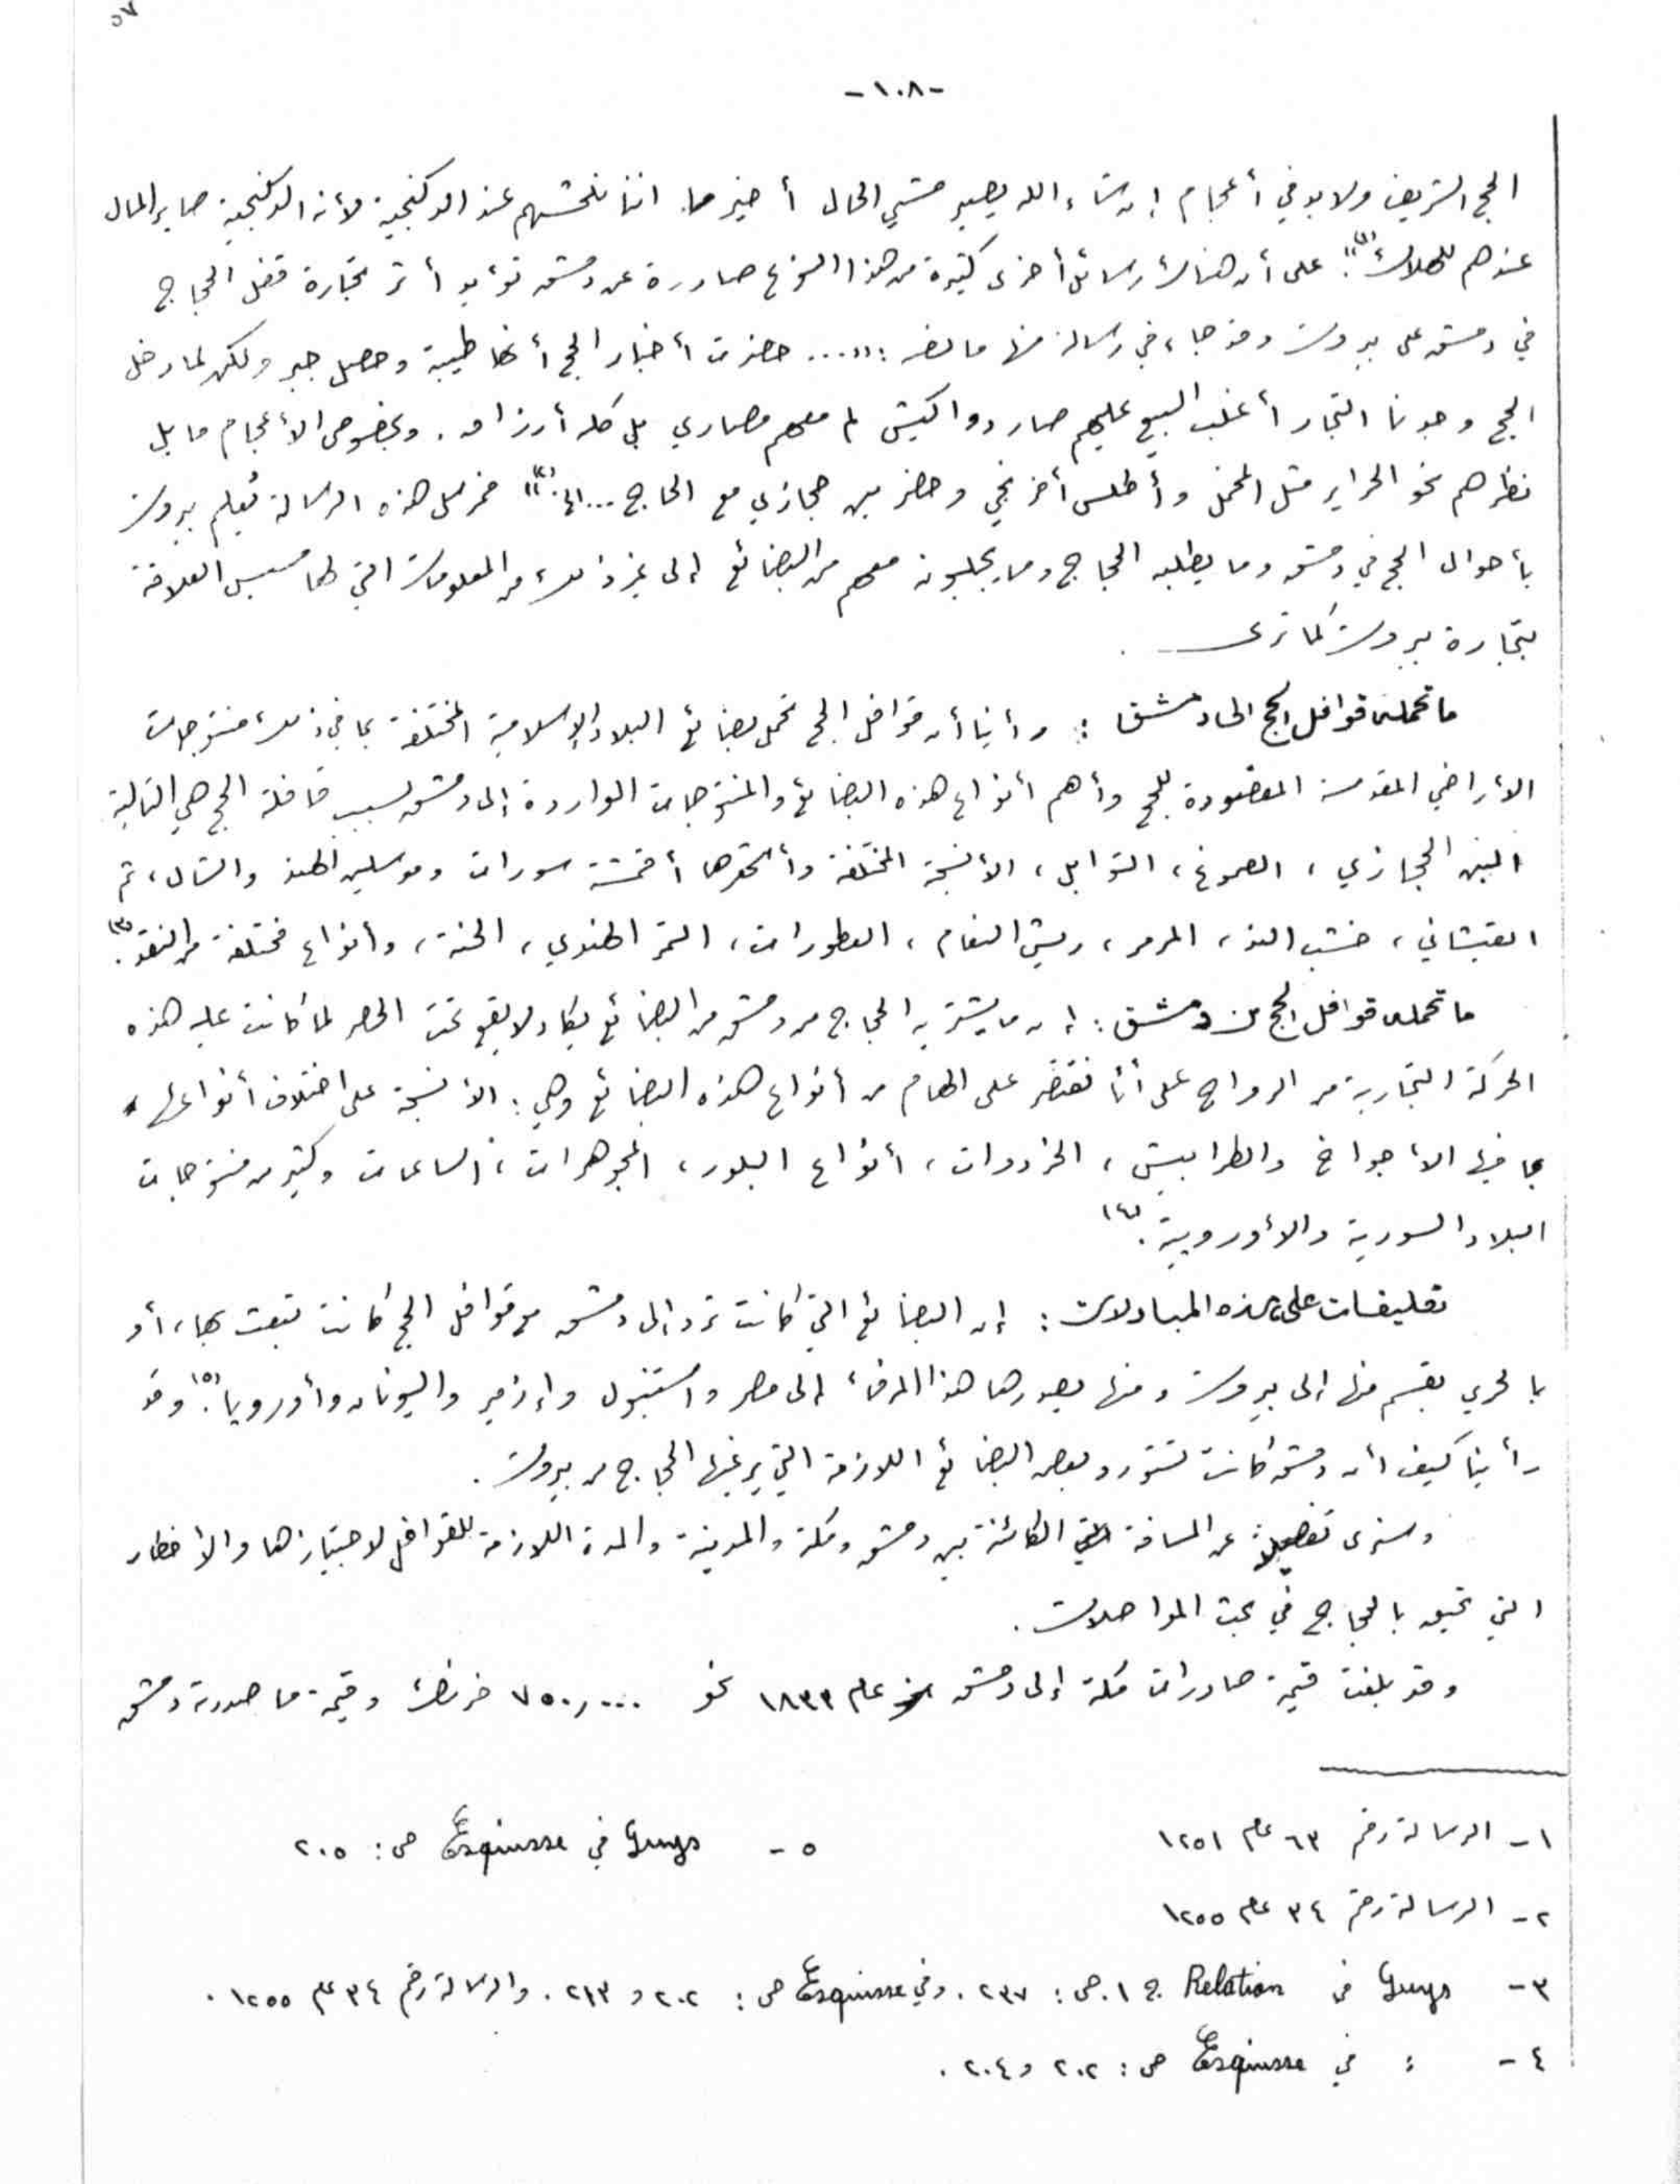 ٥٧
-١٠٨-
الحج الشريف ولا بد في أعجام إن شاء الله يصير مشي الحال أخير ما اننا نلحشهم عند الدكنجية لأنه الدكنجية صاير المال
عندهم للهلاك"(١). على أن هناك رسائل أخرى كثيرة من هذا النوع صادرة عن دمشق تؤيد أثر تجارة قفل الحجاج
في دمشق على بيروت وقد جاء في رسالة منها ما نصه: "... حضرت أخبار الحج أنها طيبة وحصل جبر ولكن لما دخل
الحج وجدنا التجار أغلب البيع عليهم صار دواكيش لم معهم مصاري بل كله أرزاق. وبخصوص الأعجام مايل
نظرهم نحو الحراير مثل المخمل وأطلس أفرنجي وحضر بن حجازي مع الحاج ... الخ."(٢) فمرسل هذه الرسالة يُعلم بيروت
بأحوال الحج في دمشق وما يطلبه الحجاج وما يجلبونه معهم من البضائع إلى غير ذلك من المعلومات التي لها مسيس العلاقة
بتجارة بيروت كما ترى.
ما تحمله قوافل الحج الى دمشق: رأينا أن قوافل الحج تحمل بضائع البلاد الإسلامية المختلفة بما في ذلك منتوجات
الأراضي المقدسة المقصودة للحج وأهم أنواع هذه البضائع والمنتوجات الواردة إلى دمشق بسبب قافلة الحج هي التالية
البن الحجازي، الصموغ، التوابل، الأنسجة المختلفة وأشهرها أقمشة سورات وموسلين الهند والشال، ثم
القيشاني، خشب الند، المرمر، ريش النعام، العطورات، التمر الهندي، الحنة، وأنواع مختلفة من النقد.(٣)
ما تحمله قوافل الحج من دمشق: إن ما يشتريه الحجاج من دمشق من البضائع يكاد لا يقع تحت الحصر لما كانت عليه هذه
الحركة التجارية من الرواج على أننا نقتصر على الهام من أنواع هذه البضائع وهي: الأنسجة على اختلاف أنواعها
بما فيها الأجواخ والطرابيش، الخردوات، أنواع البلور، المجوهرات، الساعات وكثير من منتوجات
البلاد السورية والأوروبية.(٤)
تعليقات على هذه المبادلات: إن البضائع التي كانت ترد إلى دمشق مع قوافل الحج كانت تبعث بها، أو
بالحري بقسم منها إلى بيروت ومنها يصدرها هذا المرفأ إلى مصر واستنبول وإزمير واليونان وأوروبا.(٥) وقد
رأينا كيف أن دمشق كانت تستورد بعض البضائع اللازمة التي يرغبها الحجاج من بيروت.
وسنرى تفصيلاً عن المسافة الكائنة بين دمشق ومكة والمدينة والمدة اللازمة للقوافل لاجتيازها والأخطار
التي تحيق بالحجاج في بحث المواصلات.
وقد بلغت قيمة صادرات مكة إلى دمشق عام ١٨٣٣ نحو ٧٥٠,٠٠٠ فرنك وقيمة ما صدرته دمشق
١- الرسالة رقم ٦٣ عام ١٢٥١
٥- Guys في Esquisse ص: ٢٠٥
٢- الرسالة رقم ٣٤ عام ١٢٥٥
٣- Guys في Relation ج ١. ص: ٢٣٧. وفي Esquisse ص: ٢٠٢ و ٢١٣. والرسالة رقم ٣٤ عام ١٢٥٥.
٤- : في Esquisse ص: ٢٠٢ و ٢٠٤.